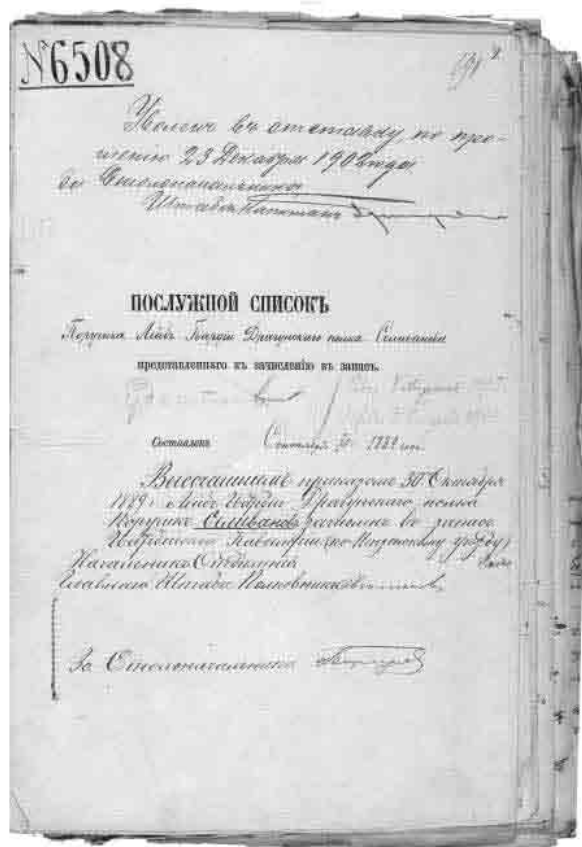 №6508
Уволенъ въ отставку, по про-
шенію 23 Декабря 1902 года.
За Столоначальника
Штабсъ-Капитанъ
ПОСЛУЖНОЙ СПИСОКЪ
Поручика Лейбъ Гвардіи Драгунскаго полка Селиванова
представленнаго къ зачисленію въ запасъ.
Составленъ Сентября 1889 года
Высочайшимъ приказомъ 30 Октября
1889 г. Лейбъ Гвардіи Драгунскаго полка
Поручикъ Селивановъ зачисленъ въ запасъ
Гвардейской Кавалеріи (по уѣзду)
Начальникъ Отдѣленія
Главнаго Штаба Полковникъ
За Столоначальника